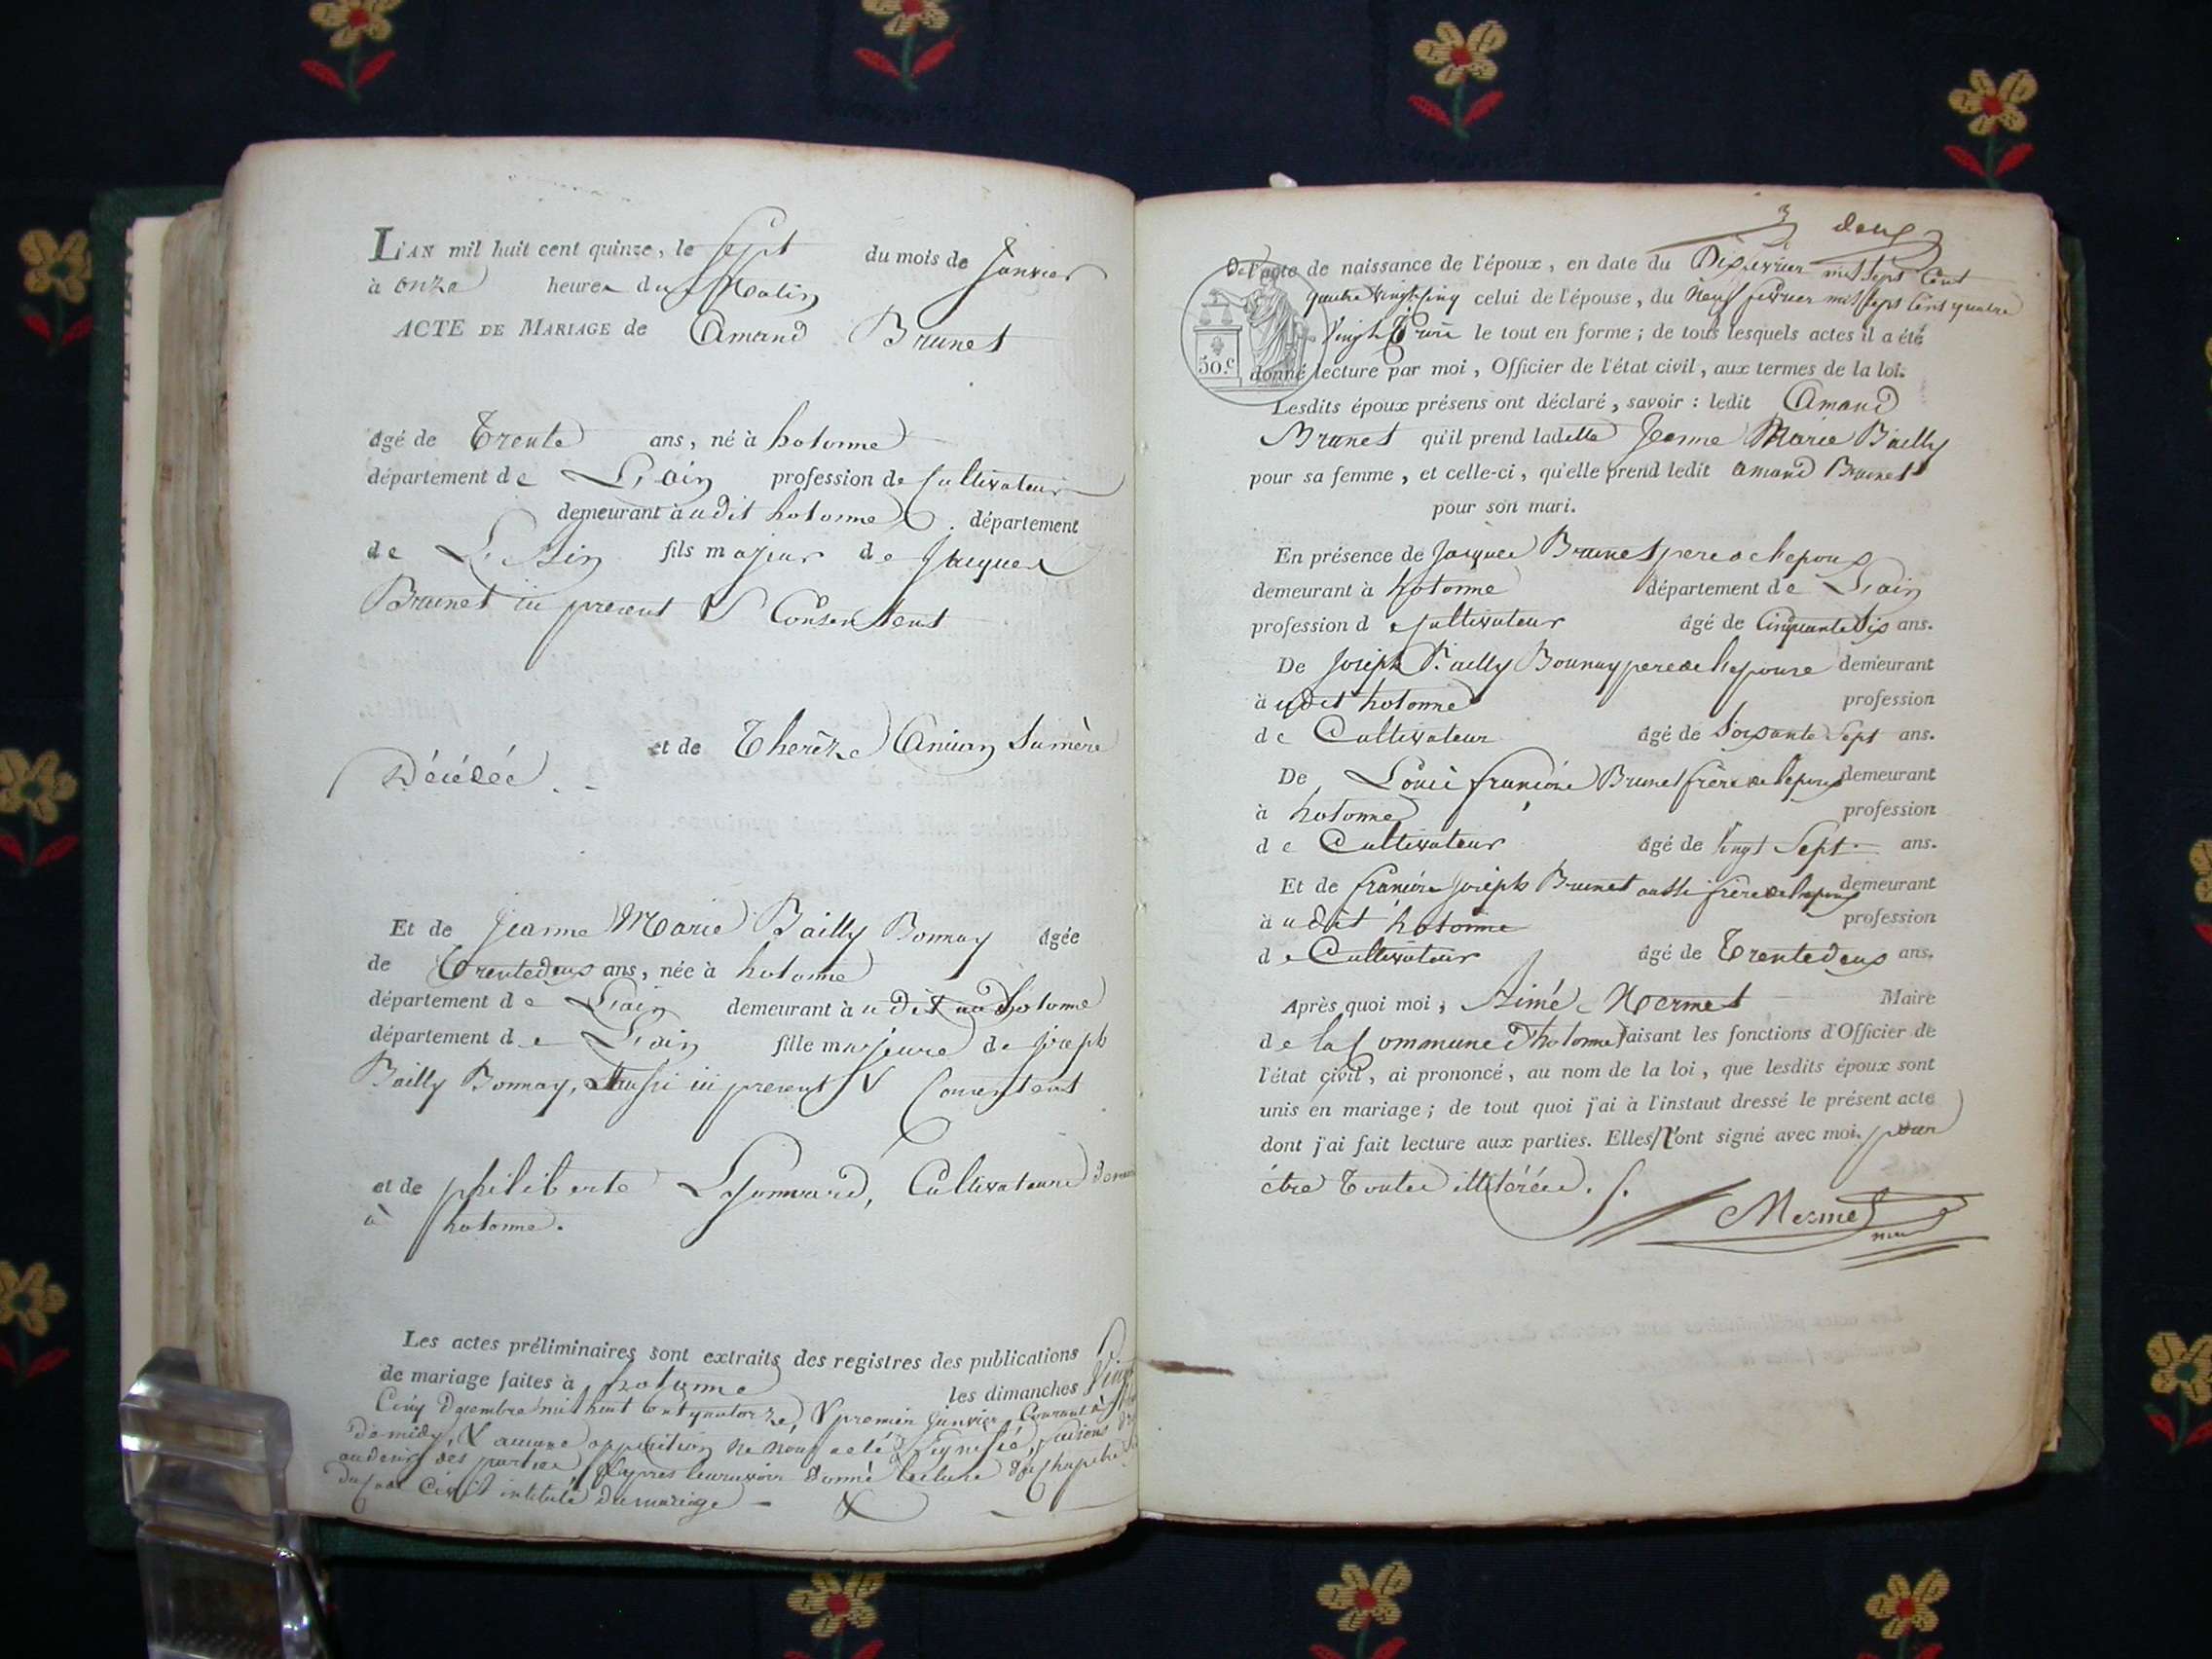 L'AN mil huit cent quinze, le sept du mois de janvier
à onze heures du Matin
ACTE DE MARIAGE de Amand Brunet
âgé de Trente ans, né à hotonne
département de L'ain profession de Cultivateur
demeurant audit hotonne département
de L'Ain fils majeur de Jacques
Brunet ici present & Consentent
et de Therèze sa mère
Décédée.
Et de Jeanne Marie Bailly Bonnay âgée
de Trentedeux ans, née à hotonne
département de L'ain demeurant à udit hotonne
département de L'ain fille majeure de joseph
Bailly Bonnay, Aussi ici present & Consentent
et de philiberte Cultivateure
à hotonne.
Les actes préliminaires sont extraits des registres des publications
de mariage faites à hotonne les dimanches Vingt
Cinq Decembre mil huit Cent quatorze, & premier janvier Courant à
de midy, & aucune opposition ne nous a eté Signifié,
des parties, D'apres leur avoir donné lecture du Chapitre
du Code Civil intitulé du mariage
deux
De l'acte de naissance de l'époux, en date du mil sept Cent
quatre Vingt Cinq celui de l'épouse, du Neuf fevrier mil sept Cent quatre
Vingt Trois le tout en forme; de tous lesquels actes il a été
50.c donné lecture par moi, Officier de l'état civil, aux termes de la loi.
Lesdits époux présens ont déclaré, savoir : ledit Amand
Brunet qu'il prend ladette Jeanne Marie Bailly
pour sa femme, et celle-ci, qu'elle prend ledit amand Brunet
pour son mari.
En présence de Jacques Brunet pere de l'epoux
demeurant à hotonne département de L'ain
profession de Cultivateur âgé de Cinquante Six ans.
De Joseph Bailly Bonnay pere de l'epouse demeurant
à udit hotonne profession
de Cultivateur âgé de Soixante Sept ans.
De Louis françois Brunet frère de l'epoux demeurant
à hotonne profession
de Cultivateur âgé de Vingt Sept ans.
Et de françois Joseph Brunet aussi frère de l'epoux demeurant
à udit hotonne profession
de Cultivateur âgé de Trentedeux ans.
Après quoi moi, Aimé Mermet Maire
de la Commune D'hotonne faisant les fonctions d'Officier de
l'état civil, ai prononcé, au nom de la loi, que lesdits époux sont
unis en mariage; de tout quoi j'ai à l'instaut dressé le présent acte
dont j'ai fait lecture aux parties. Elles N'ont signé avec moi. pour
être Toutes illitérées.
Mermet